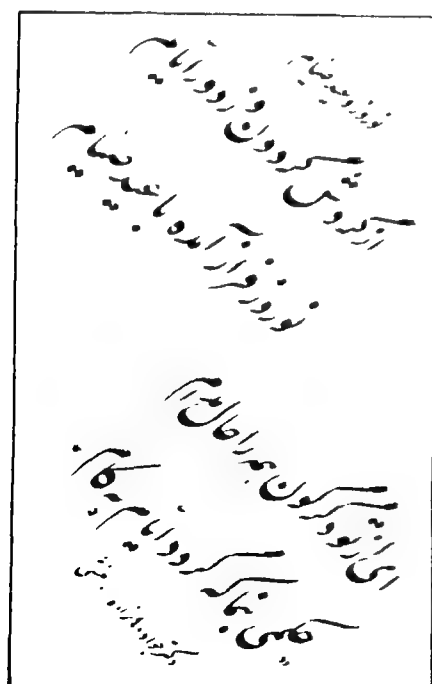 نوروز و عید صیام
از گردش گردون وز دور ایام
نوروز فراز آمده با عید صیام
ای از تو دگرگون همه را حال مدام
حکمی بنما که گردد ایام به کام.
دکتر جواد